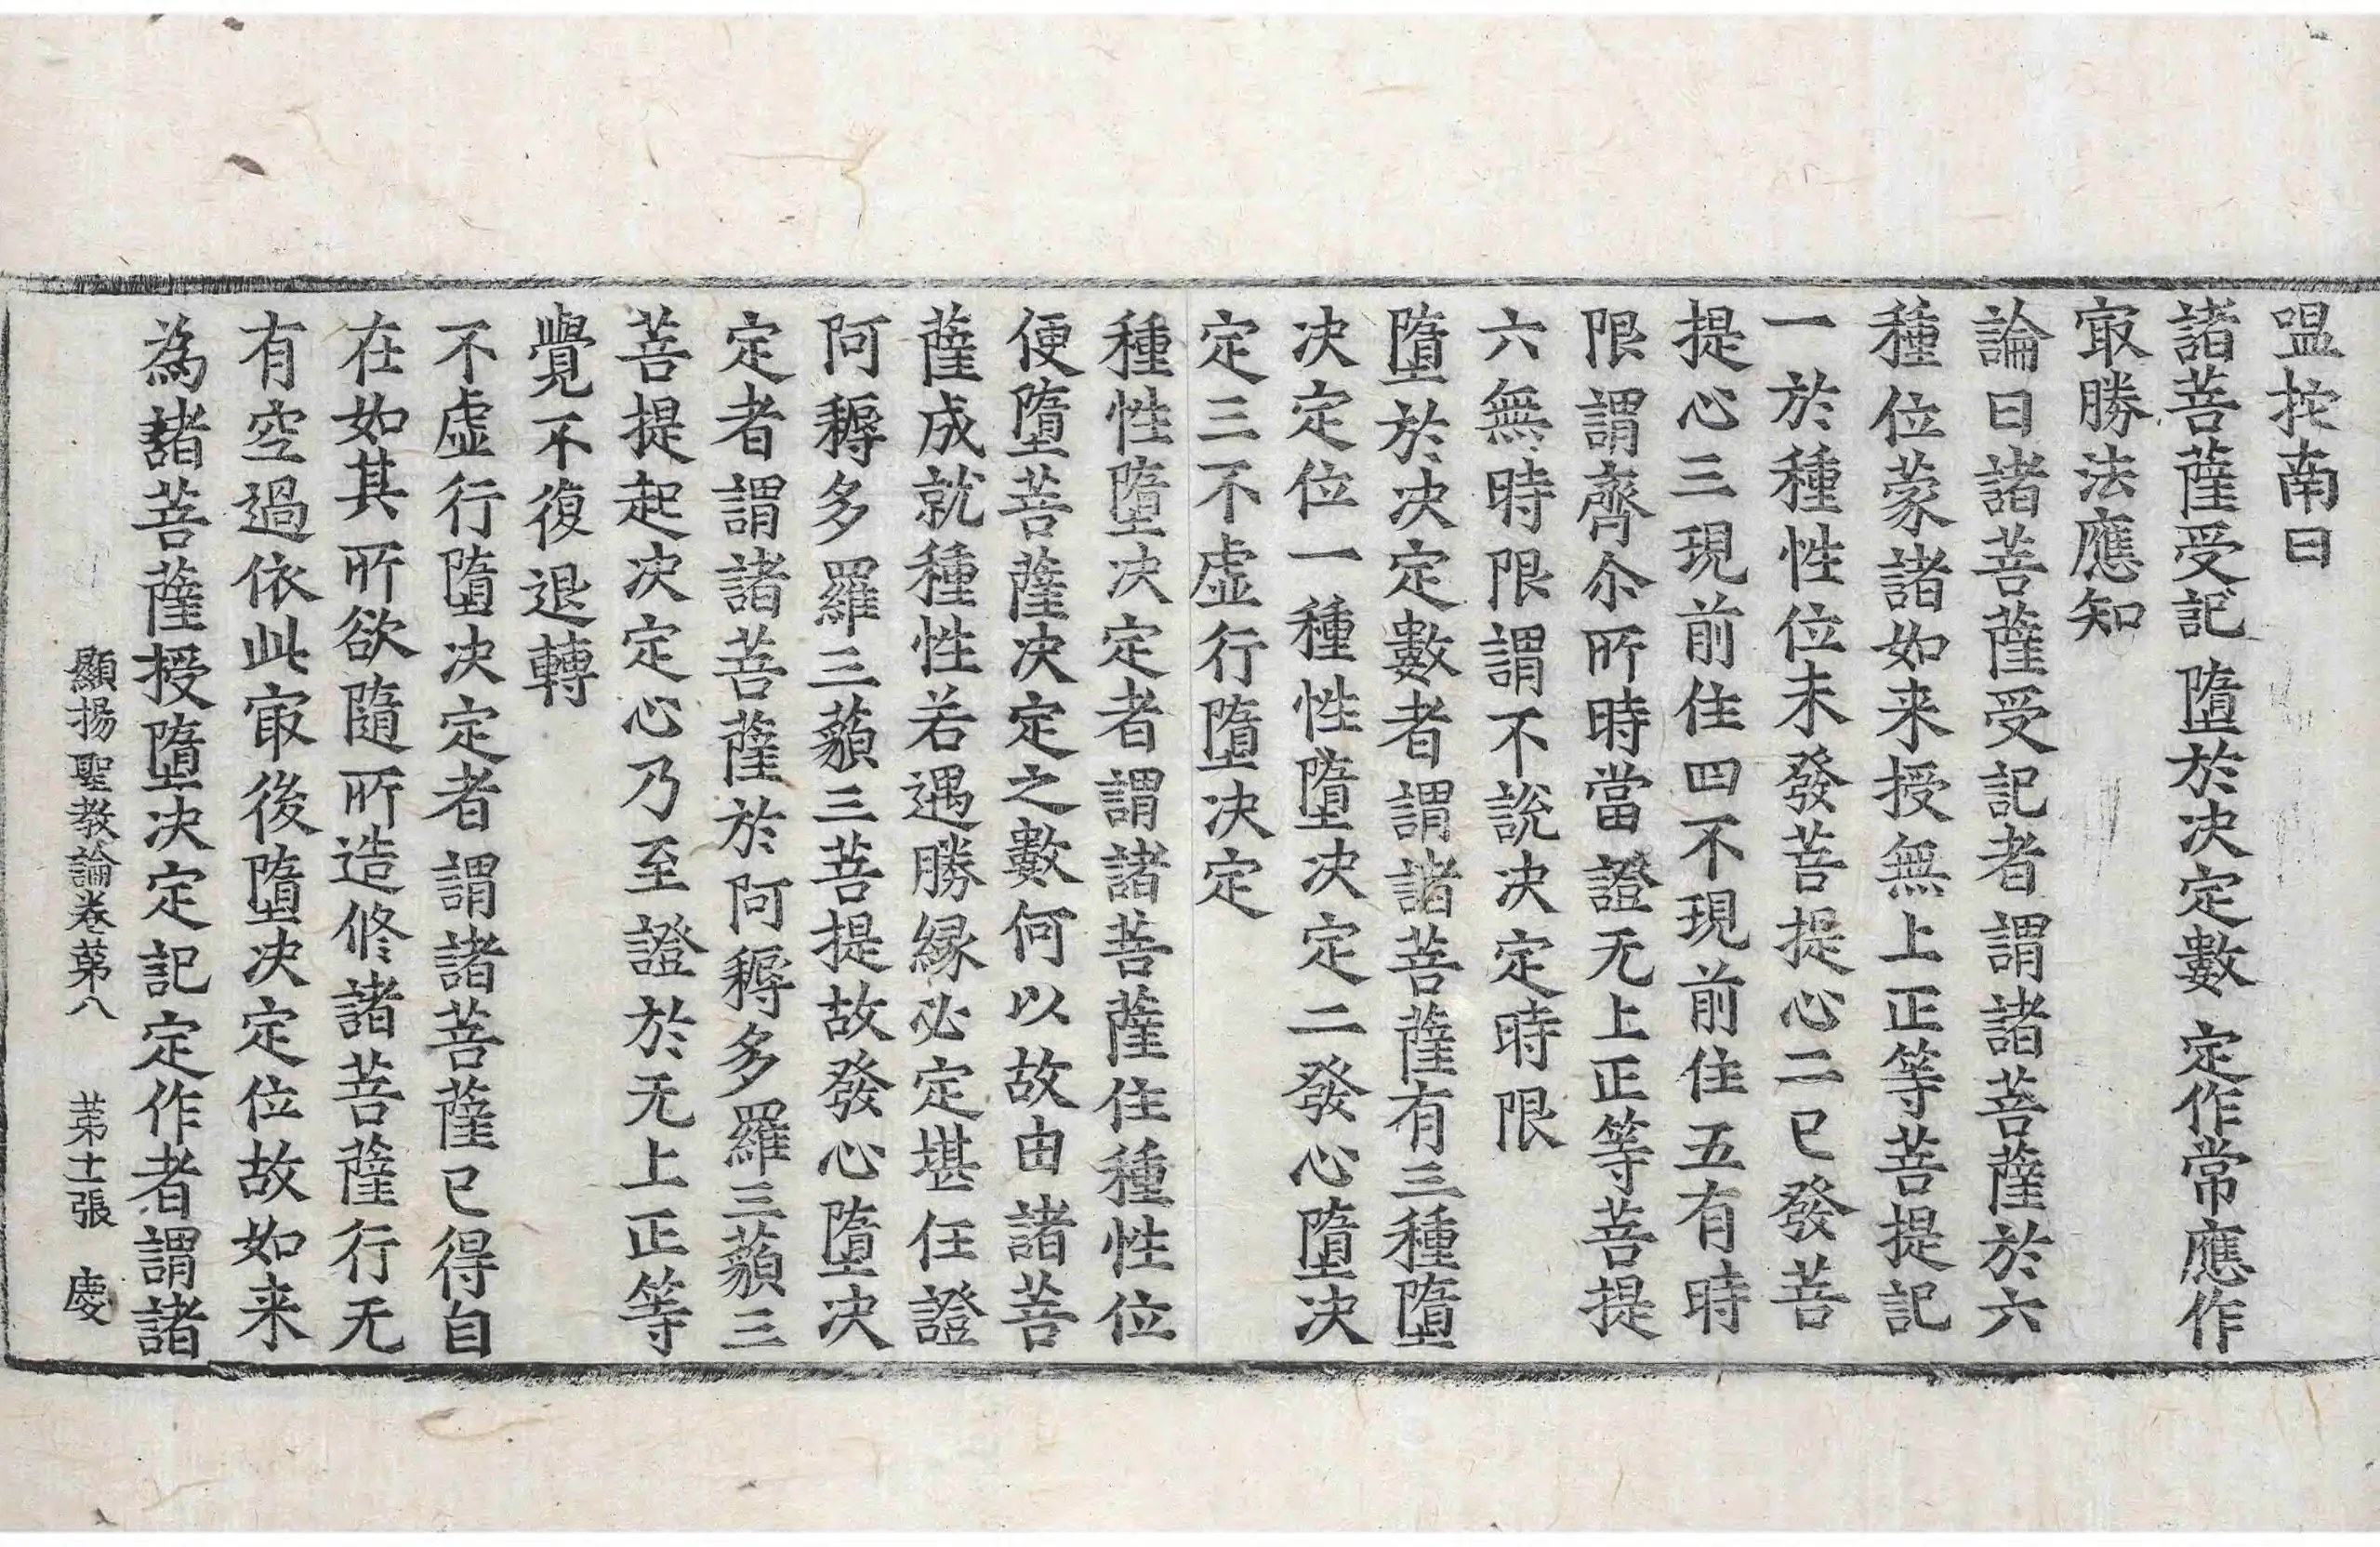 嗢拕南曰
諸菩薩受記 墮於决定數 定作常應作
㝡勝法應知
論曰諸菩薩受記者謂諸菩薩於六
種位蒙諸如来授無上正等菩提記
一於種性位未發菩提心二已發菩
提心三現前住四不現前住五有時
限謂齊尒所時當證无上正等菩提
六無時限謂不説决定時限
墮於决定數者謂諸菩薩有三種墮
决定位一種性墮决定二發心墮决
定三不虛行墮决定
種性墮决定者謂諸菩薩住種性位
便墮菩薩决定之數何以故由諸菩
薩成就種性若遇勝縁必定堪任證
阿耨多羅三藐三菩提故發心墮决
定者謂諸菩薩於阿耨多羅三藐三
菩提起决定心乃至證於无上正等
覺不復退轉
不虛行墮决定者謂諸菩薩已得自
在如其所欲隨所造修諸菩薩行无
有空過依此㝡後墮决定位故如来
為諸菩薩授墮决定記定作者謂諸
顯揚聖教論卷苐八 苐十一張 慶